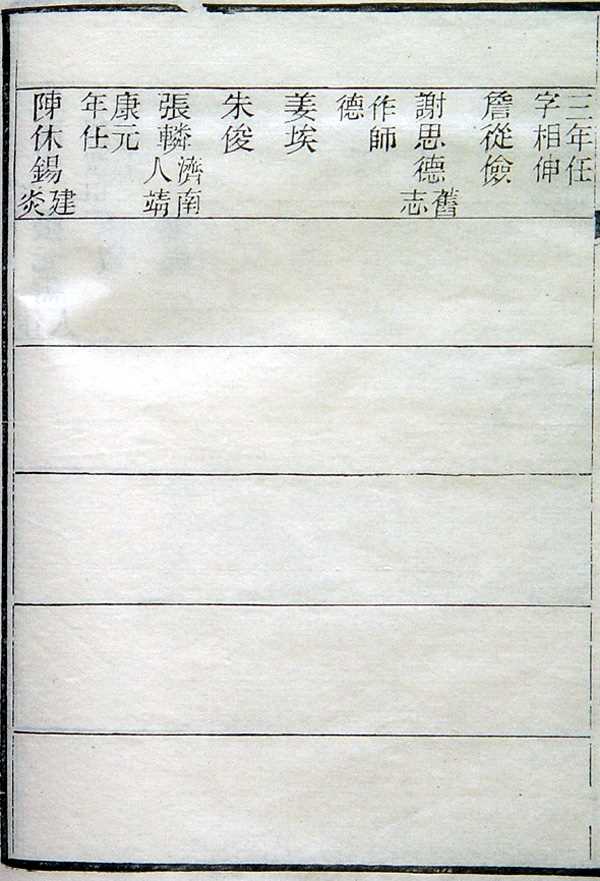 三年任
字相伸
詹從儉
謝思德舊志
作師
德
姜埃
朱俊
張轔濟南人靖
康元
年任
陳休錫建炎